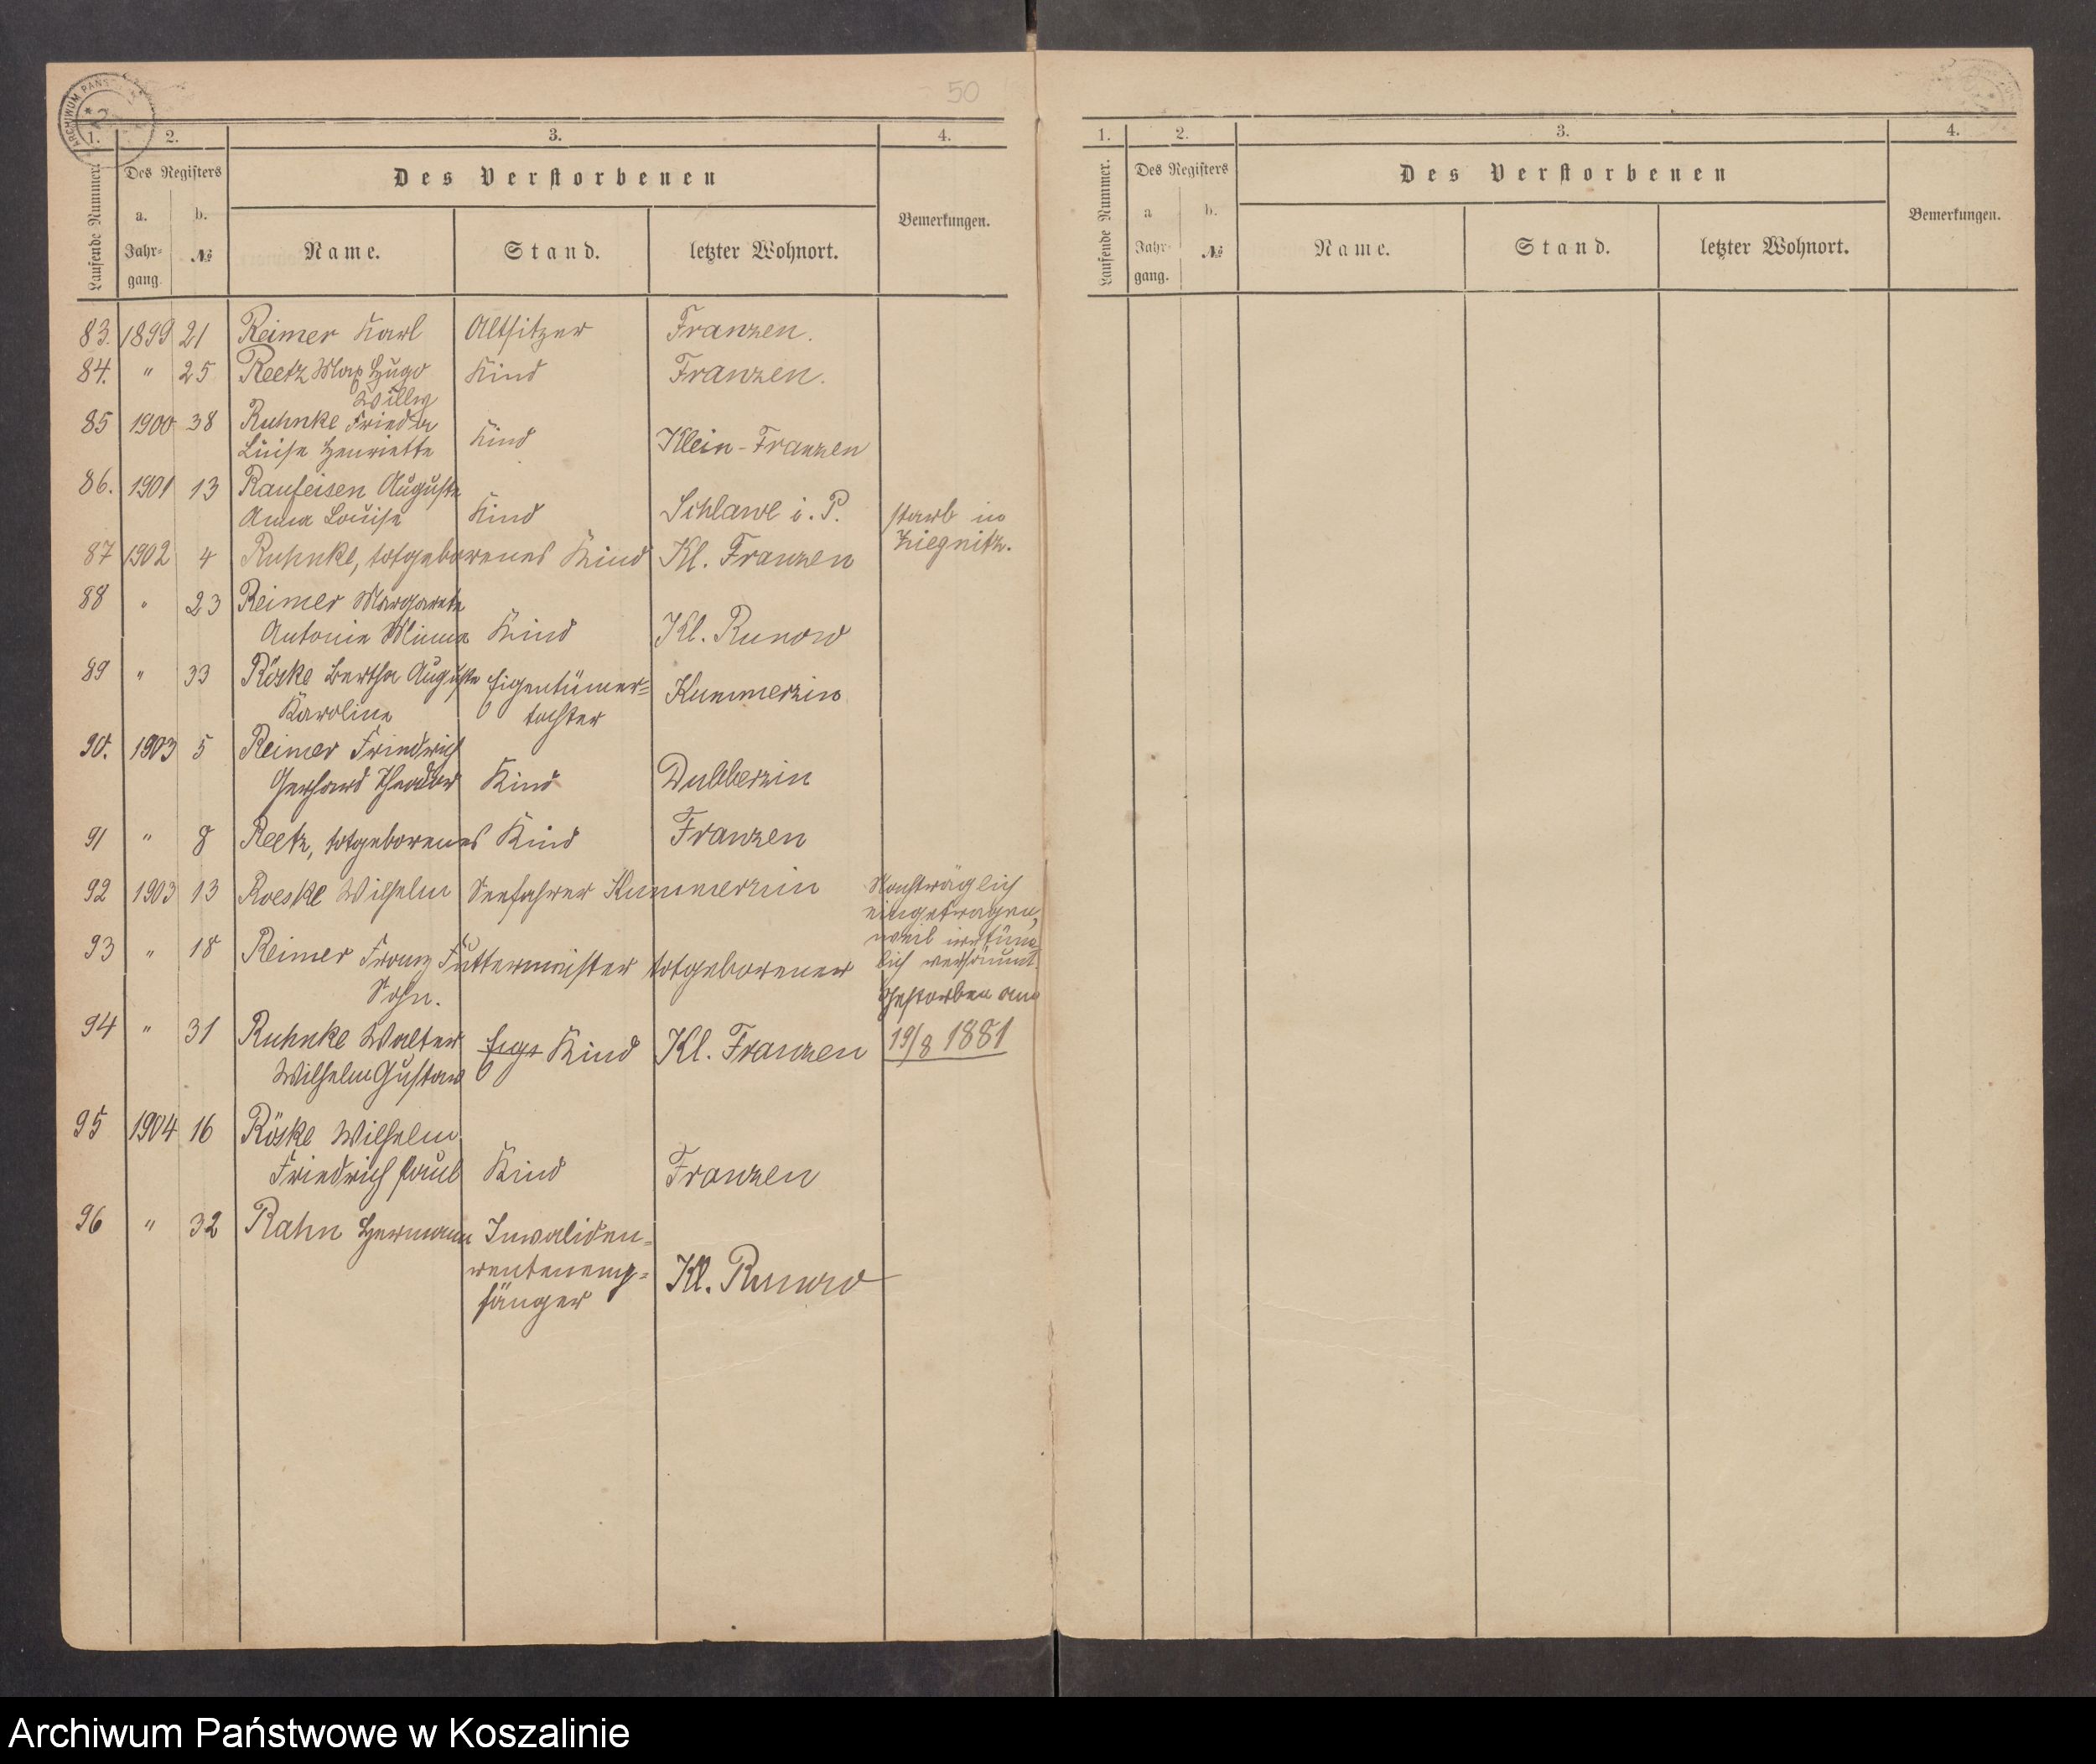 50
1. 2. 3. 4.
Laufende Nummer. Des Registers Des Verstorbenen Bemerkungen.
a. b.
Jahr- № Name. Stand. letzter Wohnort.
gang.
83. 1899 21 Reimer Karl Altsitzer Franzen.
84. " 25 Reetz Max Hugo Kind Franzen.
Willy
85 1900 38 Ruhnke Frieda
Luise Henriette Kind Klein-Franzen
86. 1901 13 Raufeisen Auguste
Anna Louise Kind Schlawe i. P. starb in
Liegnitz.
87 1902 4 Ruhnke, totgeborenes Kind Kl. Franzen
88 " 23 Reimer Margarete
Antonie Minna Kind Kl. Runow
89 " 33 Röske Bertha Auguste Eigentümer= Kummerzin
Karoline tochter
90. 1903 5 Reimer Friedrich
Gerhard Theodor Kind Dubberzin
91 " 8 Reetz, totgeborenes Kind Franzen
92 1903 13 Roeske Wilhelm Seefahrer Kummerzin Nachträglich
eingetragen,
weil irrtüm
lich versäumt.
Gestorben am
19/8 1881
93 " 18 Reimer Franz Futtermeister totgeborener
Sohn.
94 " 31 Ruhnke Walter Eige Kind Kl. Franzen
Wilhelm Gustav
95 1904 16 Röske Wilhelm
Friedrich Paul Kind Franzen
96 " 32 Rahn Hermann Invaliden=
rentenemp= Kl. Runow
fänger
1. 2. 3. 4.
Laufende Nummer. Des Registers Des Verstorbenen Bemerkungen.
a b.
Jahr- № Name. Stand. letzter Wohnort.
gang.
Archiwum Państwowe w Koszalinie